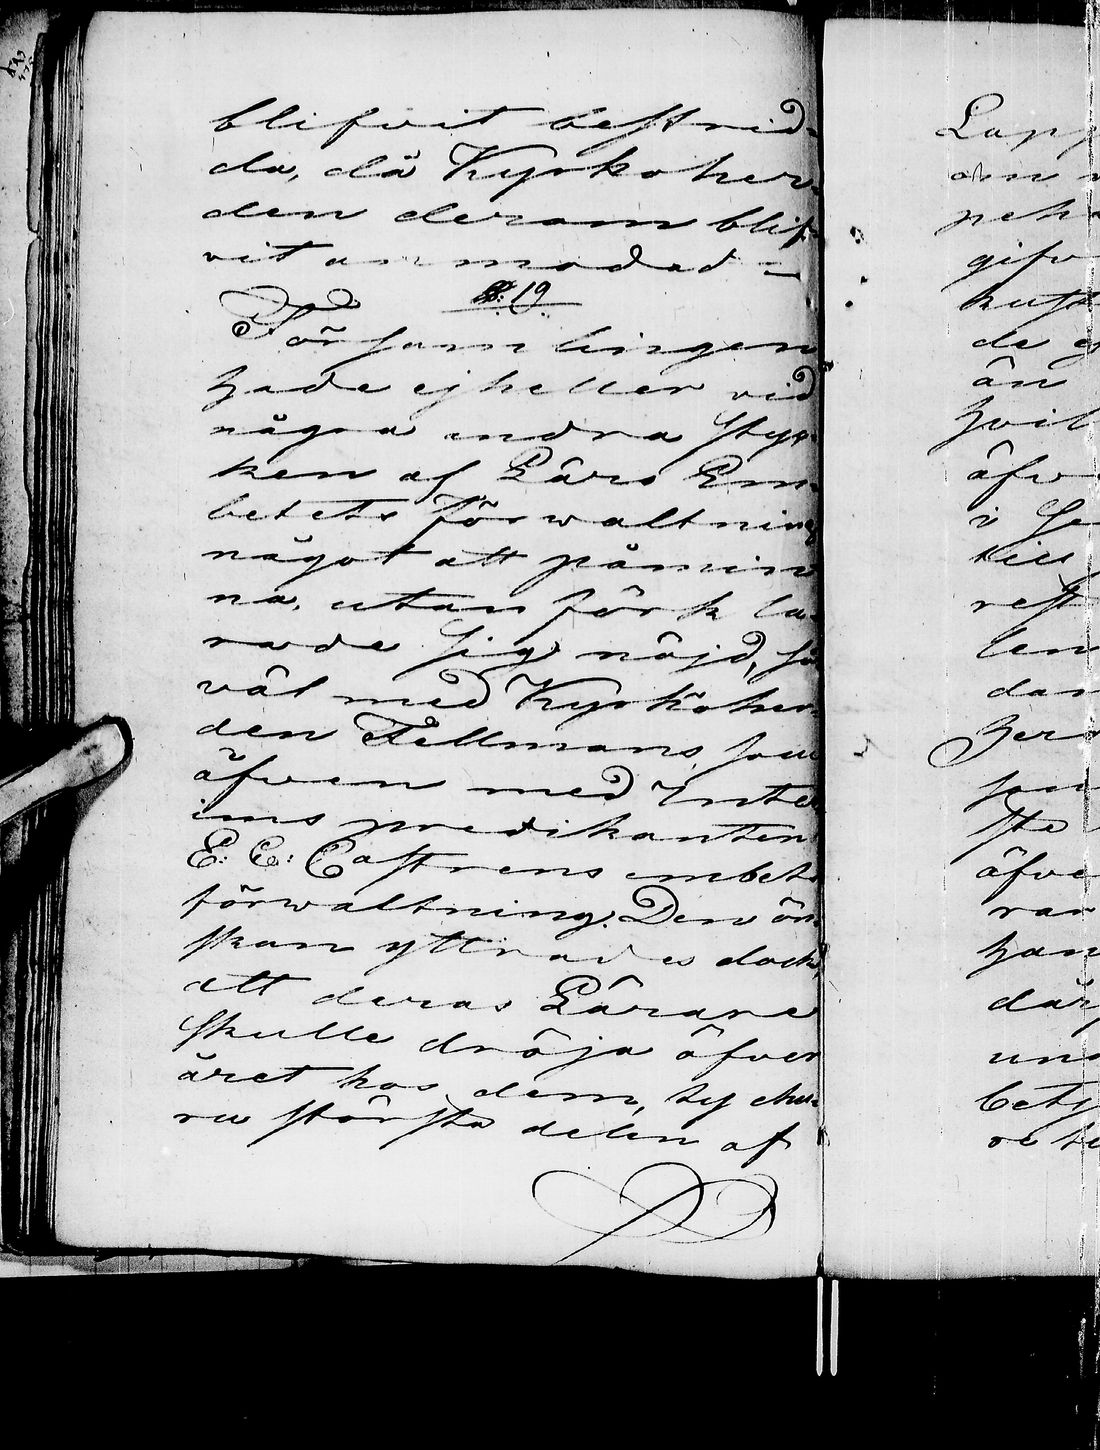 blifvit bestrid-
da, då Kyrkoher-
den derom blif-
vit anmodad =
§: 19.
Församlingen
hade ej heller vid
några andra styc-
ken af Läro Em-
betets förwaltning
något att påmin
na, utan förkla-
rade sig nöjd, så
väl med Kyrkoher-
den Fellmans, som
äfven med Inte
ims predikanten
E: E: Castrens embets
förwaltning. Den ön-
skan yttrades dock
att deras Lärare
skulle dröja öfver
året hos dem, ty ehu-
ru största delen af
Lapp
om
peh
gifv
kust
de
än
hvil
äfv
i
till
rest
len
dan
som
sta
äfve
rar
han
där
und
bets